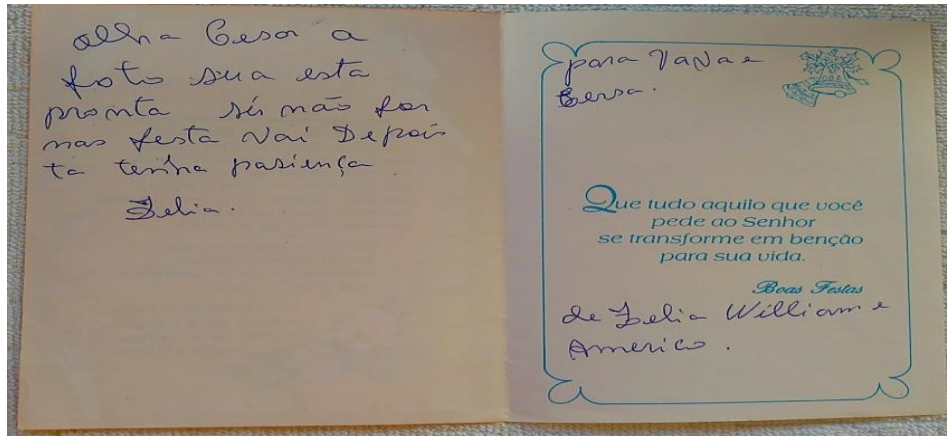 olha Cesar a
foto sua esta
pronta sis não for
nas festa Vai Depois
ta tenha pasiença
Zelia.
para VaNa e
Cersa.
Que tudo aquilo que você
pede ao Senhor
se transforme em benção
para sua vida.
Boas Festas
de Zelia William e
Americo.